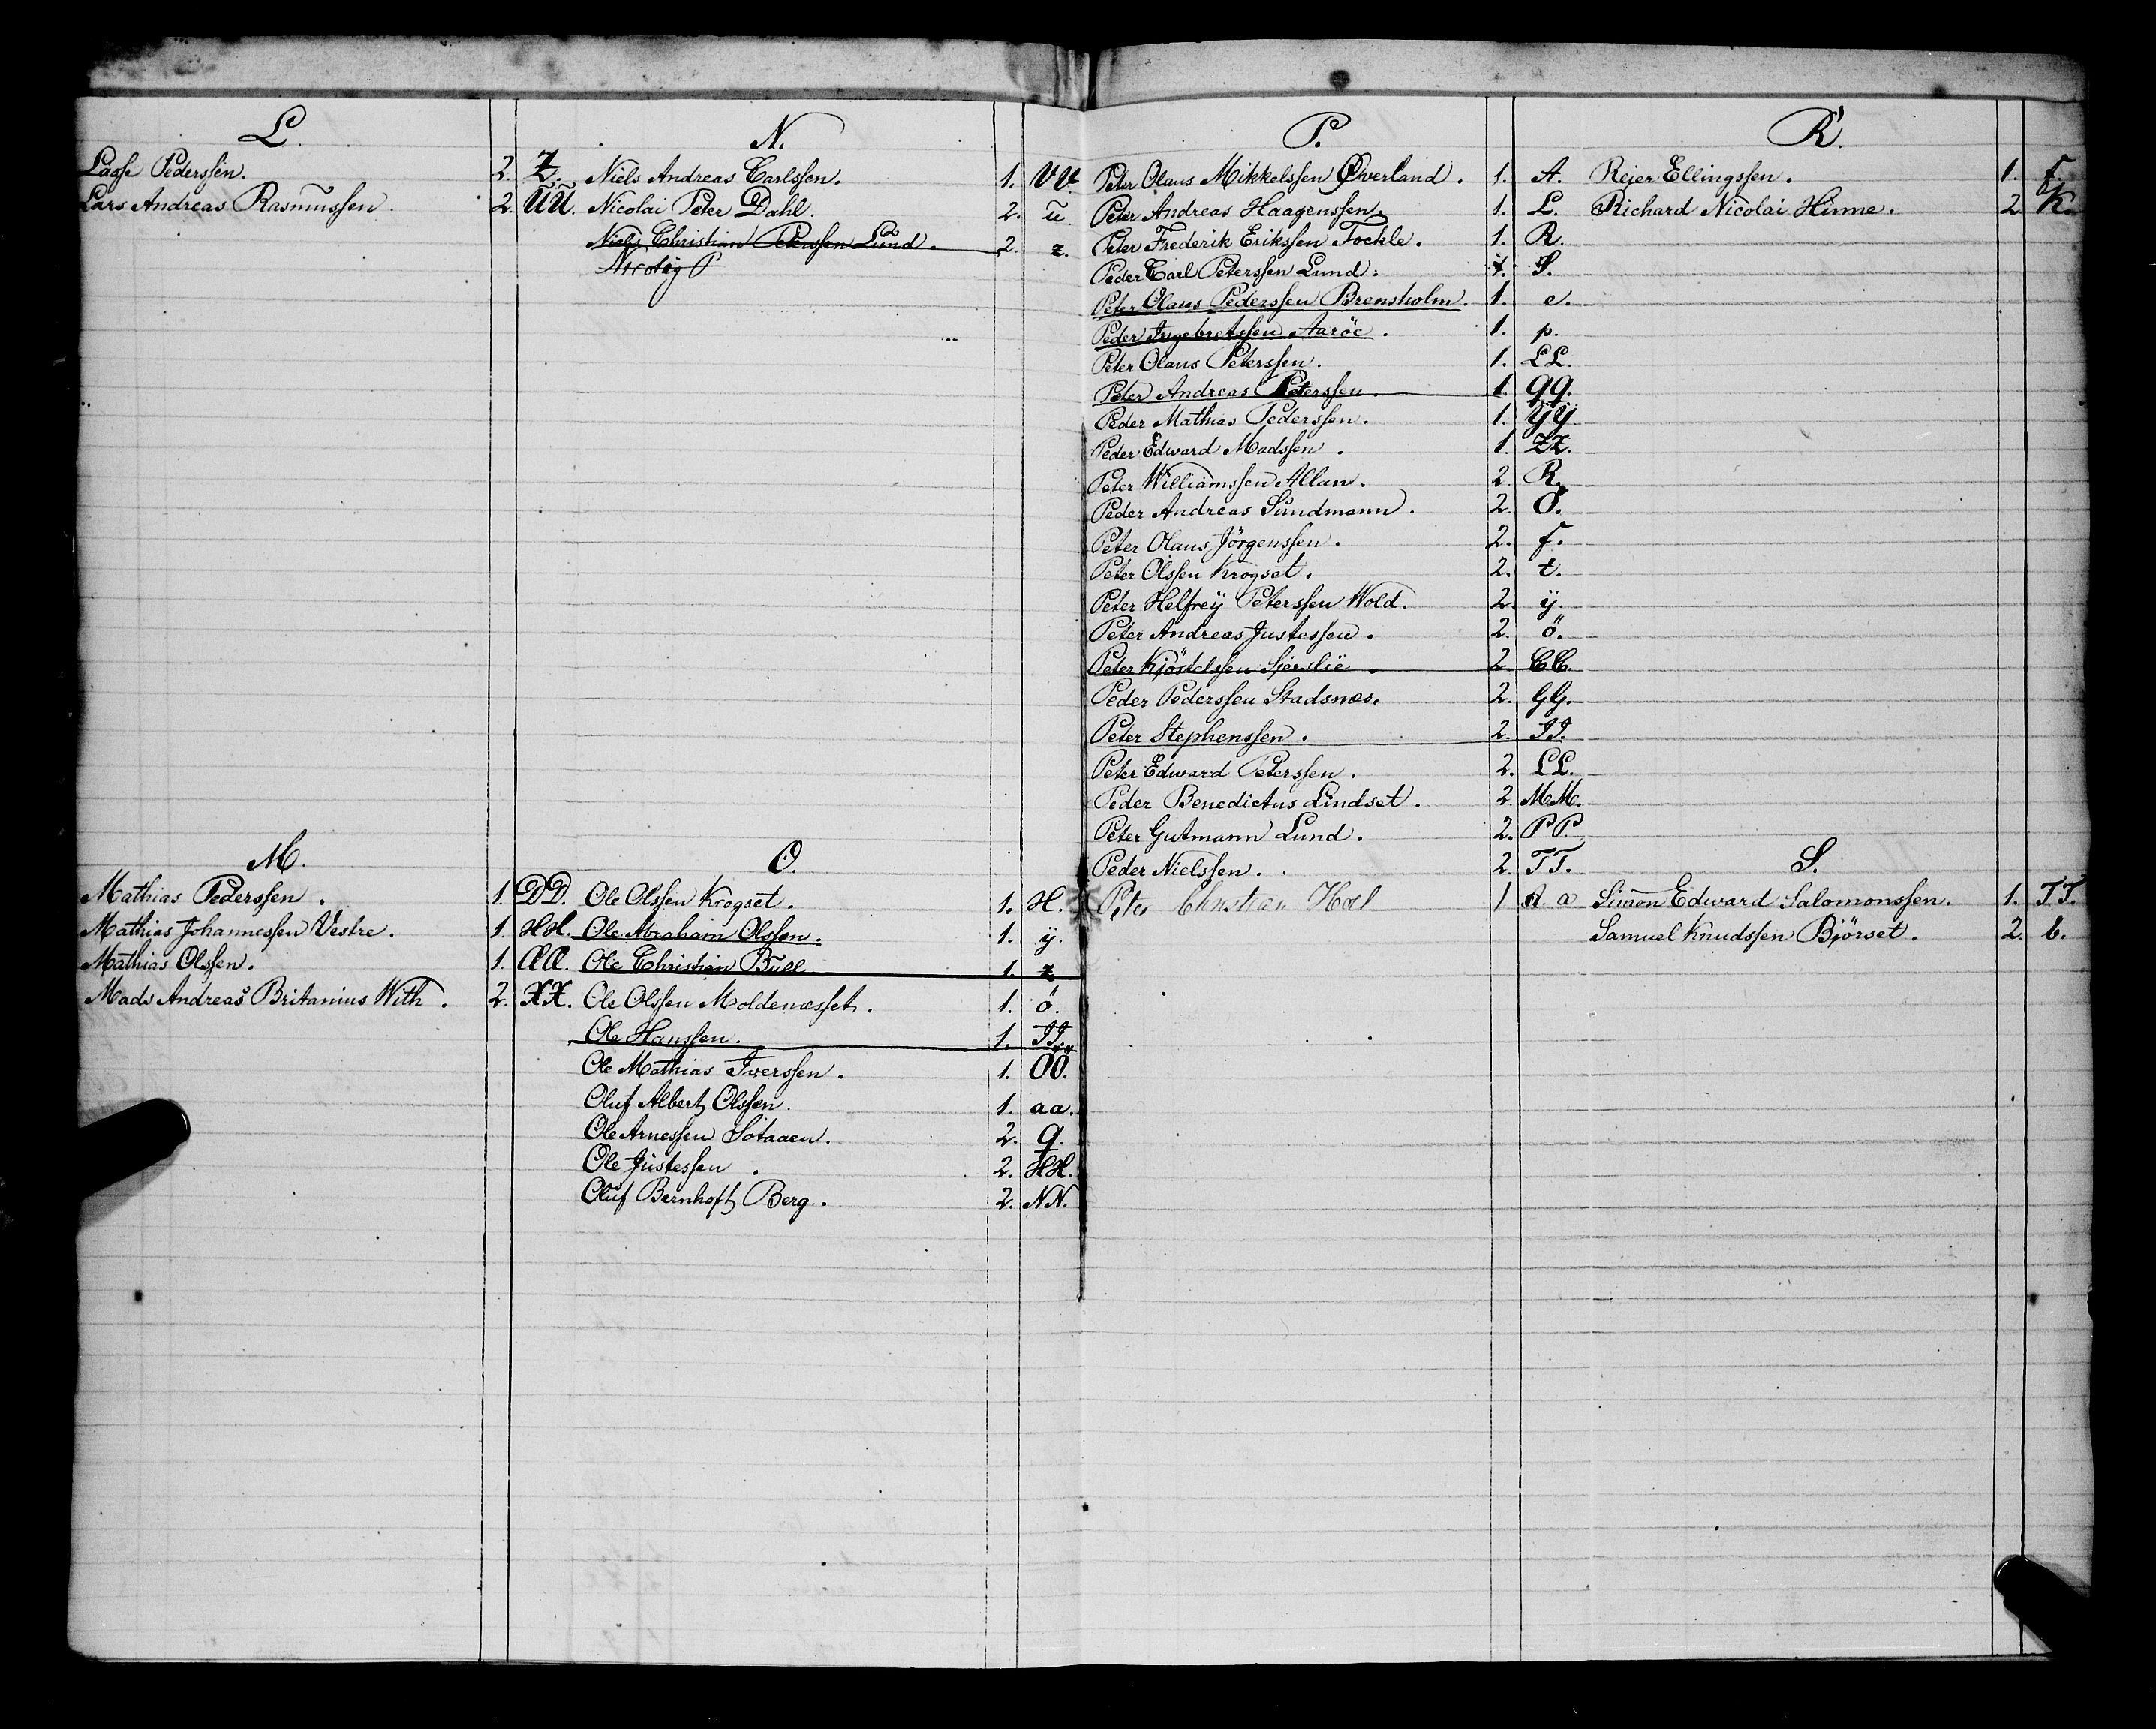 L.
Lasse Pederssen. 2. Z.
Lars Andreas Rasmussen. 2. UU.
M.
Mathias Pederssen. 1. DD.
Mathias Johannessen Vestre. 1. HH.
Mathias Olssen. 1. ÆÆ.
Mads Andreas Britanius With. 2. XX.
N.
Niels Andreas Carlssen. 1. VV.
Nicolai Peter Dahl. 2. u
Niels Christian Peterssen Lund. 2. z.
Nicolay P
O.
Ole Olssen Krogset. 1. H.
Ole Abraham Olssen. 1. ÿ.
Ole Christian Bull 1. z
Ole Olssen Moldenæsset. 1. ö.
Ole Hanssen. 1. II.
Ole Mathias Iverssen. 1. ÖÖ.
Oluf Albert Olssen. 1. aa.
Ole Arnessen Sotaaen. 2. q.
Ole Justessen. 2. HH.
Oluf Bernhoft Berg. 2. NN.
P.
Peter Olaus Mikkelssen Øverland. 1. A.
Peter Andreas Haagenssen. 1. L.
Peter Frederik Erikssen Tockle. 1. R.
Peder Carl Peterssen Lund. 1. S.
Peter Olaus Pederssen Brensholm. 1. e.
Peder Ingebretssen Aaröe. 1. p.
Peter Olaus Peterssen. 1. LL.
Peter Andreas Peterssen. 1. QQ.
Peder Mathias Pederssen. 1. YY.
Peder Edward Madssen. 1. ZZ.
Peter Williamssen Allan. 2. R.
Peder Andreas Sundmann. 2. Ö.
Peter Olaus Jörgenssen. 2. f.
Peter Olssen Krogset. 2. t.
Peter Helfrey Peterssen Wold. 2. ÿ.
Peter Andreas Justessen. 2. ö.
Peter 2. CC.
Peder Pederssen Stadsnæs. 2. GG.
Peter Stephenssen. 2. II.
Peter Edward Peterssen. 2. LL.
Peder Benedictus Lindset. 2. MM.
Peter Gutmann Lund. 2. PP.
Peder Nielssen. 2. TT.
Peter Christian Hoel 1 a a
R.
Rejer Ellingssen. 1. f.
Richard Nicolai Hinne. 2. K.
S.
Simon Edward Salomonssen. 1. TT.
Samuel Knudssen Bjørset. 2. b.